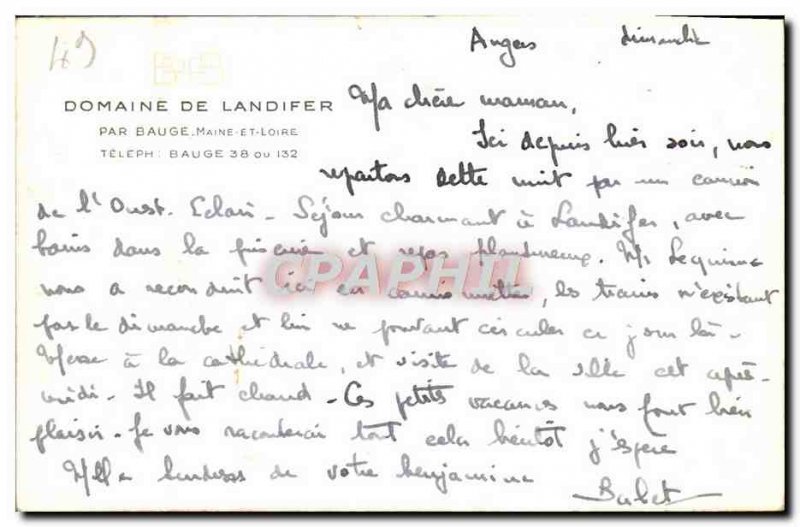 49
Angers dimanche
DOMAINE DE LANDIFER
PAR BAUGE, MAINE-ET-LOIRE
TÉLÉPH: BAUGE 38 OU 132
Ma chère maman,
Ici depuis hier soir, nous
repartons cette nuit par un camion
de l'Ouest. Eclair - Séjour charmant à Landifer, avec
bains dans la piscine et repas plantureux. Mr
nous a reconduit ici en, les trains n'existant
pas le dimanche et ne pouvant circuler ce jour là -
Messe à la cathédrale, et visite de la ville cet après-
midi - Il fait chaud - Ces petites vacances nous font bien
plaisir - Je vous raconterai tout cela bientôt j'espère
Mille tendresses de votre benjamine
Babet
CPAPHIL